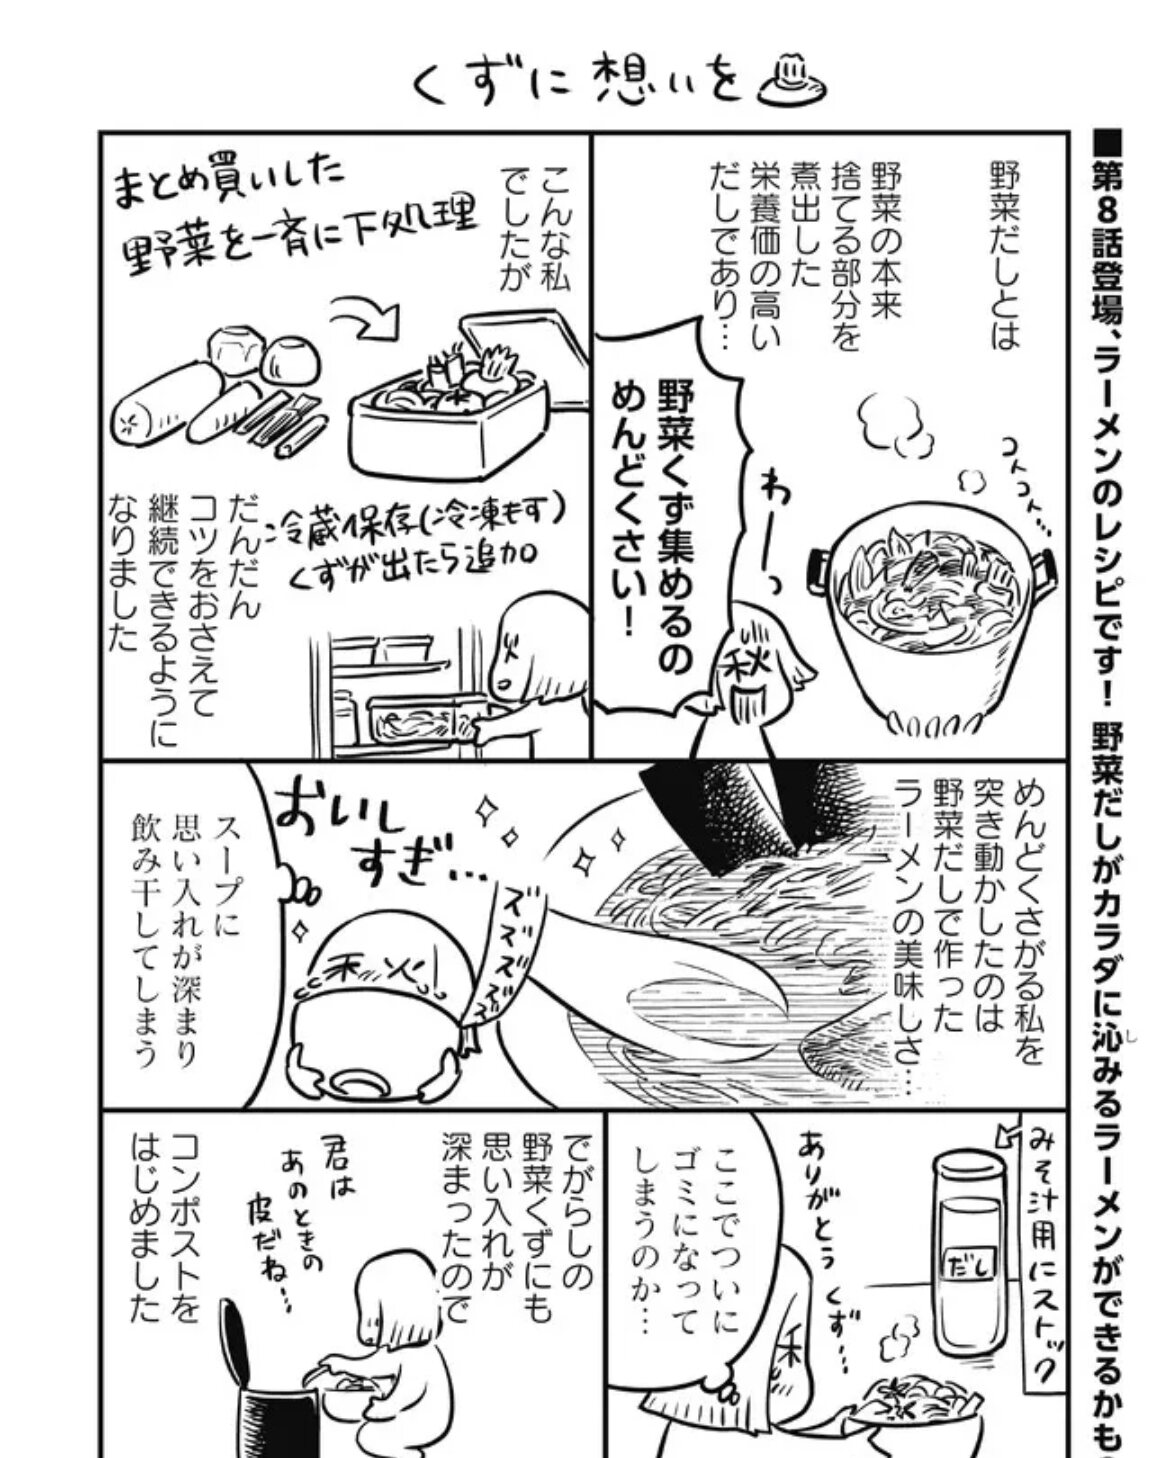 くずに想いを
■第8話登場、ラーメンのレシピです！ 野菜だしがカラダに沁みるラーメンができるかも
し
野菜だしとは
野菜の本来
捨てる部分を
煮出した
栄養価の高い
だしであり…
コトコト…
わーっ
秋
野菜くず集めるの
めんどくさい！
こんな私
でしたが
まとめ買いした
野菜を一斉に下処理
冷蔵保存(冷凍も可)
くずが出たら追加
だんだん
コツをおさえて
継続できるように
なりました
めんどくさがる私を
突き動かしたのは
野菜だしで作った
ラーメンの美味しさ…
ズズズズズ
おいし
すぎ…
秋
スープに
思い入れが深まり
飲み干してしまう
みそ汁用にストック
だし
ありがとう
くず…
ここでついに
ゴミになって
しまうのか…
でがらしの
野菜くずにも
思い入れが
深まったので
君は
あのときの
皮だね…
コンポストを
はじめました